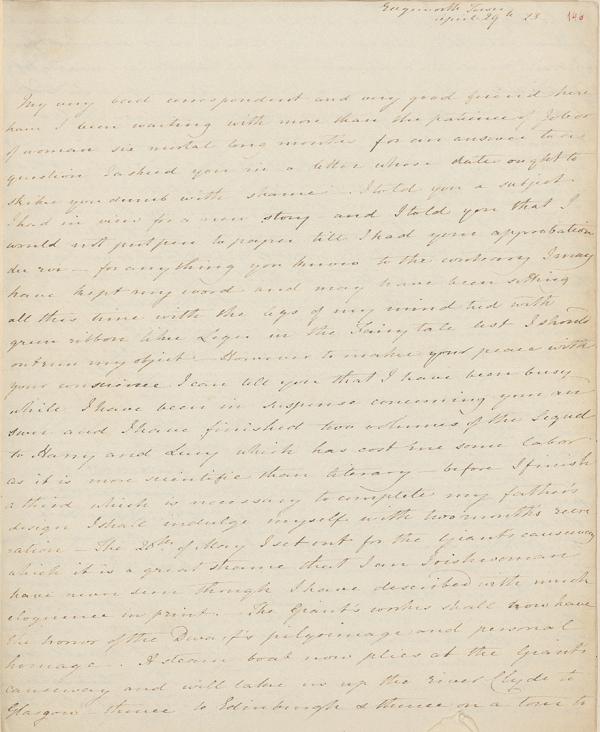 Edgeworth Town
April 29th 23 140
My very bad correspondent and very good friend here
have I been waiting with more than the patience of Job or
of woman six mortal long months for an answer to one
question I asked you in a letter whose date ought to
strike you dumb with shame. I told you a subject
I had in view for a new story and I told you that I
would not put pen to paper till I had your approbation
du roi — for anything you know to the contrary I may
have kept my word and may have been sitting
all this time with the legs of my mind tied with
green ribbon like Leger in the Fairy tale lest I should
outrun my object. However to make your peace with
your conscience I can tell you that I have been busy
while I have been in suspense concerning you an
swer and I have finished two volumes of the Sequel
to Harry and Lucy which has cost me some labor
as it is more scientific than literary — before I finish
a third which is necessary to complete my father's
design I shall indulge myself with two month's recre
ation — The 20th of May I set out for the Giants causeway
which it is a great shame that I an Irishwoman
have never seen though I have described with much
eloquence in print. The Giant's works shall now have
the honor of the Dwarf's pilgrimage and personal
homage. A steam boat now plies at the Giants
causeway and will take us up the river Clyde to
Glasgow — thence to Edinburgh & thence on a tour to